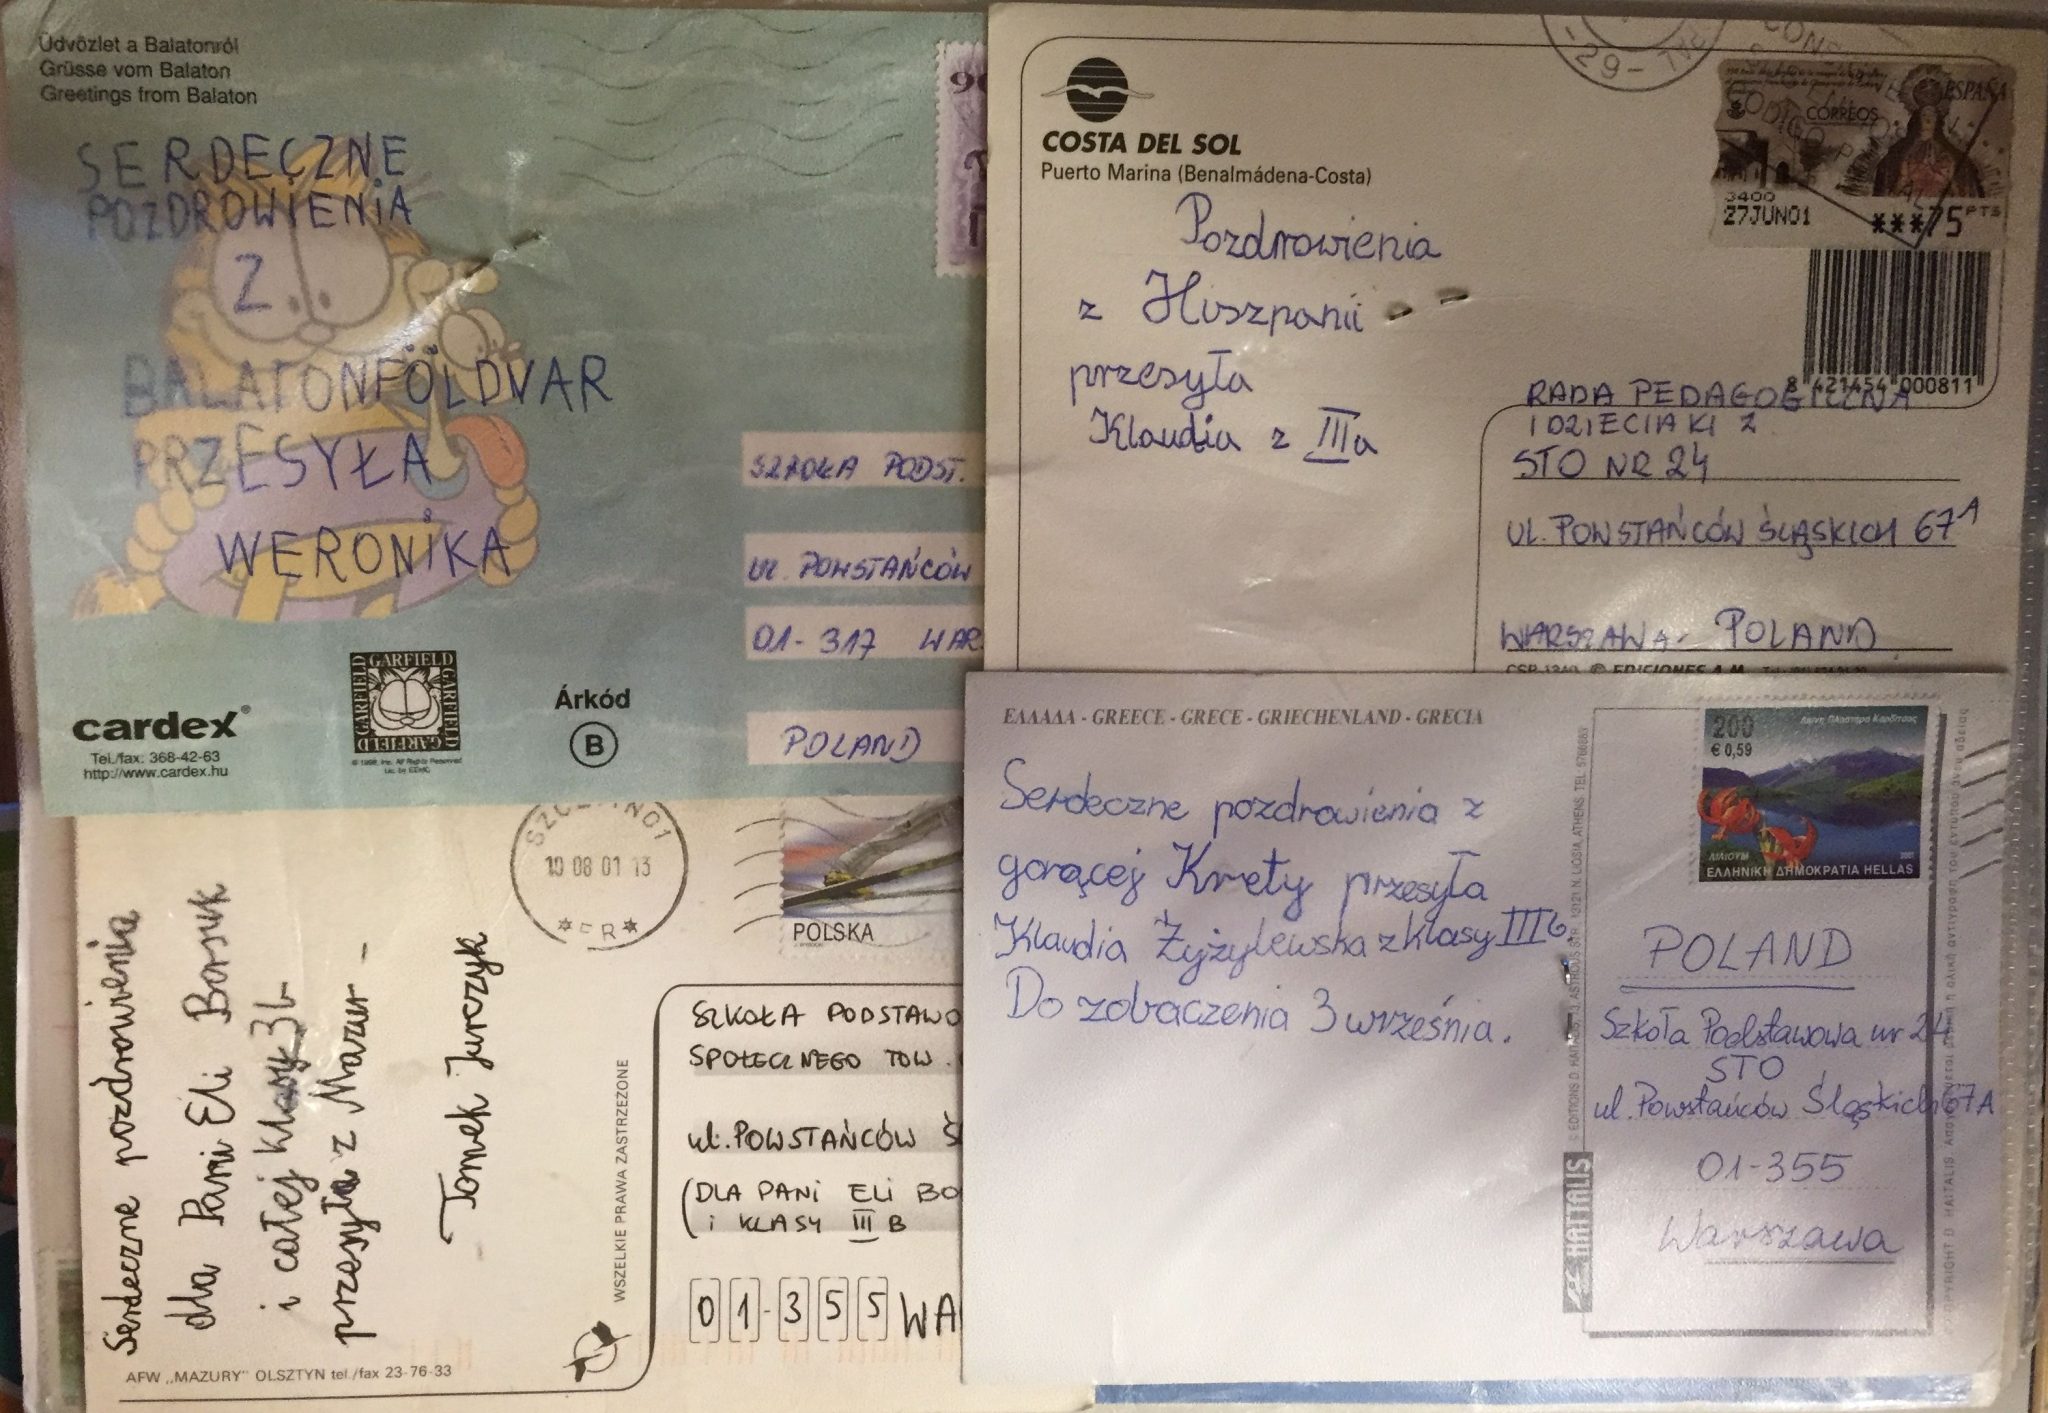 Üdvözlet a Balatonról
Grüsse vom Balaton
Greetings from Balaton
SERDECZNE
POZDROWIENIA
Z
BALATONFÖLDVAR
PRZESYŁA
WERONIKA
SZKOŁA PODST.
UL. POWSTAŃCÓW
01-317 WAR
POLAND
cardex
Tel./fax: 368-42-63
http://www.cardex.hu
GARFIELD
GARFIELD
GARFIELD
GARFIELD
Árkód
B
COSTA DEL SOL
Puerto Marina (Benalmádena-Costa)
ESPAÑA
CORREOS
3400
27JUN01 ***75 PTS
8 421454 000811
Pozdrowienia
z Hiszpanii
przesyła
Klaudia z IIIa
RADA PEDAGOGICZNA
I DZIECIAKI Z
STO NR 24
UL. POWSTAŃCÓW ŚLĄSKICH 67A
WARSZAWA- POLAND
© EDICIONES A.M.
10 08 01 13
POLSKA
Serdeczne pozdrowienia
dla Pani Eli Borsuk
i całej klasy 3b
przesyła z Mazur -
Tomek Jurczyk
WSZELKIE PRAWA ZASTRZEŻONE
SZKOŁA PODSTAWO
SPOŁECZNEGO TOW.
ul. POWSTAŃCÓW Ś
(DLA PANI ELI BO
i KLASY III B
01-355 WA
AFW „MAZURY" OLSZTYN tel./fax 23-76-33
ΕΛΛΑΔΑ - GREECE - GRECE - GRIECHENLAND - GRECIA
Serdeczne pozdrowienia z
gorącej Krety przesyła
Klaudia Żyżylewska z klasy IIIb.
Do zobaczenia 3 września.
HAITALIS
200
€ 0,59
ΛΙΛΙΟΥΜ 2001
ΕΛΛΗΝΙΚΗ ΔΗΜΟΚΡΑΤΙΑ HELLAS
POLAND
Szkoła Podstawowa nr 24
STO
ul. Powstańców Śląskich 67A
01-355
Warszawa